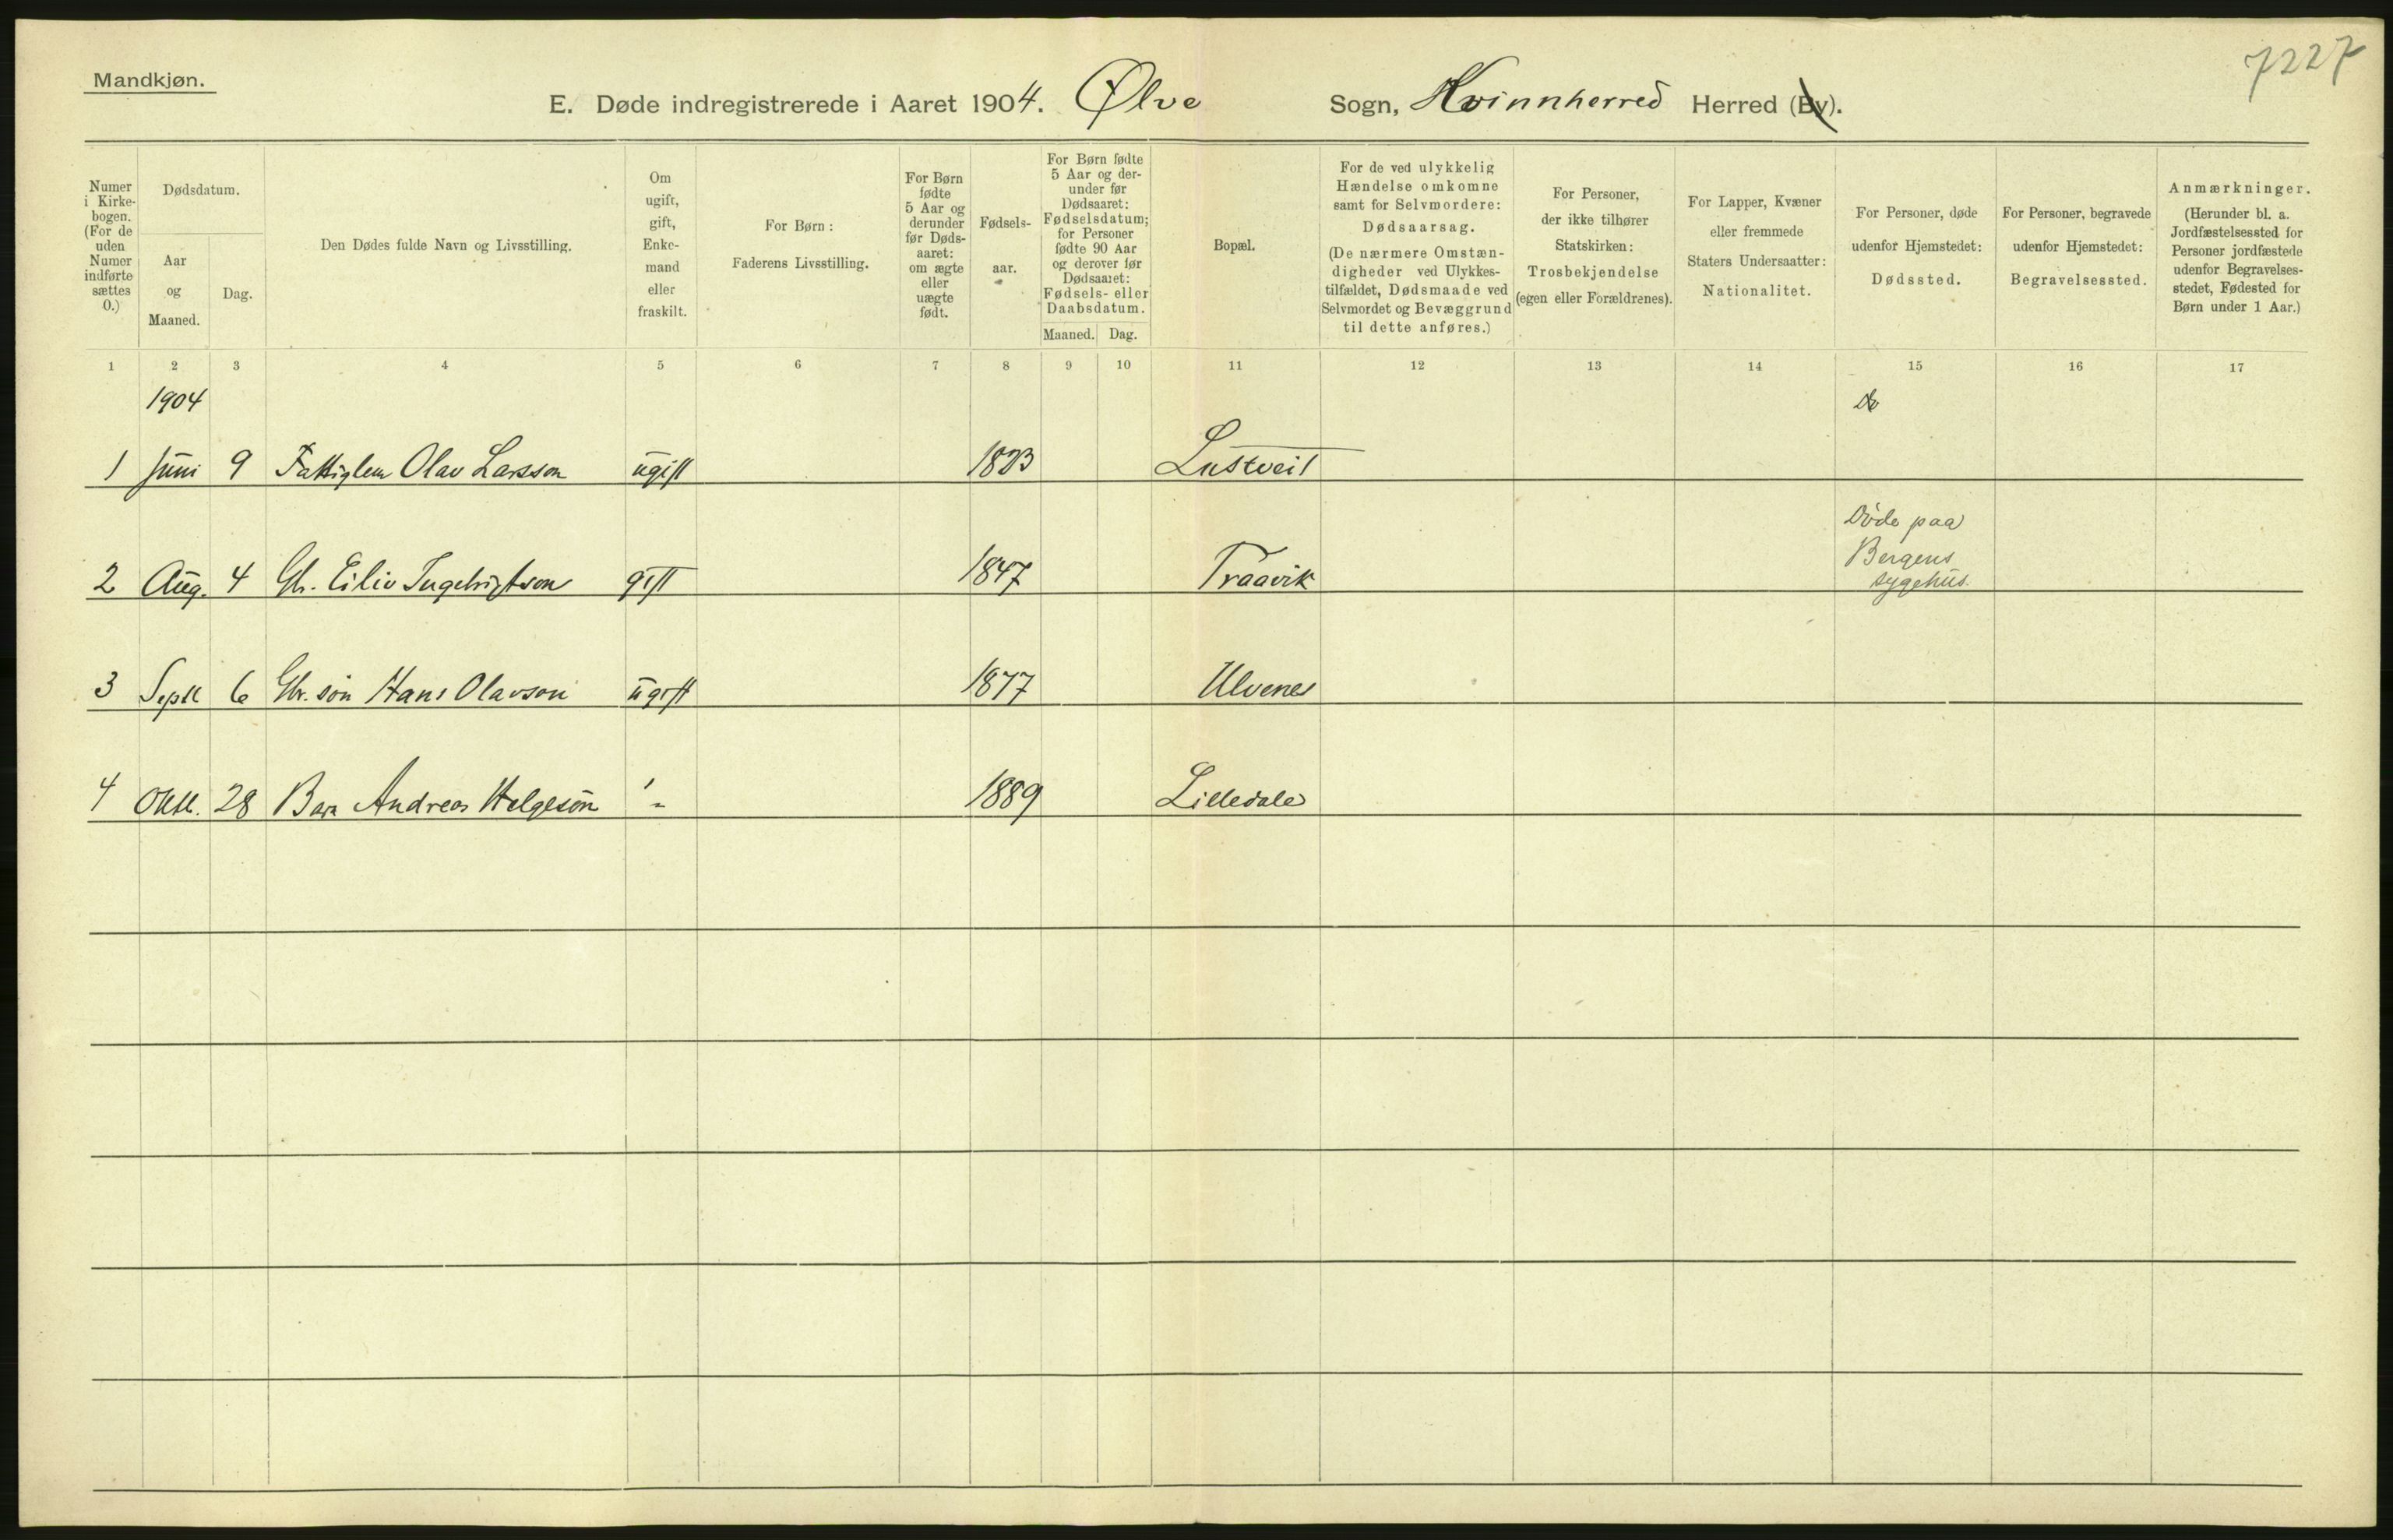 7227
Mandkjøn.
E. Døde indregistrerede i Aaret 1904. Ølve Sogn, Hvinnherred Herred (By).
Numer i Kirkebogen. (For de uden Numer indførte sættes 0.)
Dødsdatum.
Aar og Maaned.
Dag.
Den Dødes fulde Navn og Livsstilling.
Om ugift, gift, Enkemand eller fraskilt.
For Børn: Faderens Livsstilling.
For Børn fødte 5 Aar og derunder før Dødsaaret: om ægte eller uægte født.
Fødselsaar.
For Børn fødte 5 Aar og derunder før Dødsaaret: Fødselsdatum; for Personer fødte 90 Aar og derover før Dødsaaret: Fødsels- eller Daabsdatum.
Maaned. Dag.
Bopæl.
For de ved ulykkelig Hændelse omkomne samt for Selvmordere: Dødsaarsag. (De nærmere Omstændigheder ved Ulykkestilfældet, Dødsmaade ved Selvmordet og Bevæggrund til dette anføres.)
For Personer, der ikke tilhører Statskirken: Trosbekjendelse (egen eller Forældrenes).
For Lapper, Kvæner eller fremmede Staters Undersaatter: Nationalitet.
For Personer, døde udenfor Hjemstedet: Dødssted.
For Personer, begravede udenfor Hjemstedet: Begravelsessted.
Anmærkninger. (Herunder bl. a. Jordfæstelsessted for Personer jordfæstede udenfor Begravelsesstedet, Fødested for Børn under 1 Aar.)
1 2 3 4 5 6 7 8 9 10 11 12 13 14 15 16 17
1904
1 Juni 9 Fattiglem Olav Larsson ugift Lustveit
Døde paa
Bergens
sygehus.
2 Aug. 4 Gb. Eiliv Ingebrigtson gift 1847 Traavik
3 Septb 6 Gbr. søn Hans Olavson ugift 1877 Ulvenes
4 Oktb. 28 Barn Andreas Helgesøn - 1889 Lilledale